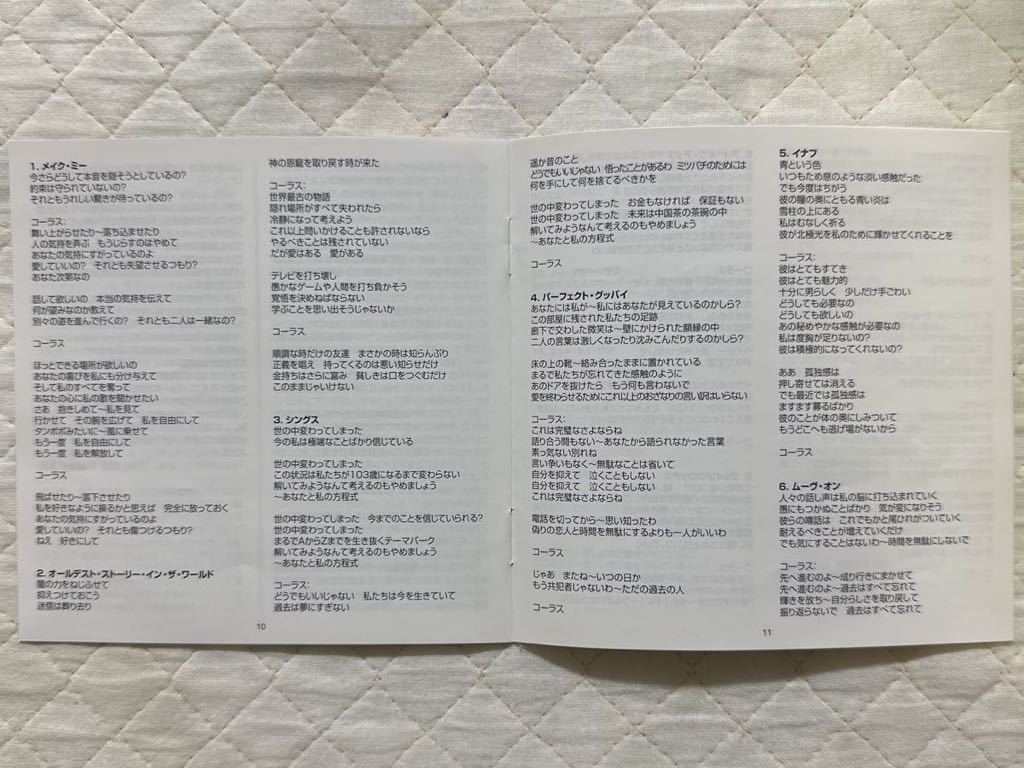 1. メイク・ミー
今さらどうして本音を隠そうとしているの?
約束は守られていないないの?
それともうれしい驚きが待っているの?
コーラス:
舞い上がらせたり〜落ち込ませたり
人の気持を弄ぶ もうじらすのはやめて
あなたの気持にすがっているのよ
愛していいの? それとも失望させるつもり?
あなた次第なの
話して欲しいの 本当の気持を伝えて
何が望みなのか教えて
別々の道を進んで行くの? それとも二人は一緒なの?
コーラス
ほっとできる場所が欲しいの
あなたの喜びを私にも分け与えて
そして私のすべてを奪って
あなたの心に私の歌を聞かせたい
さあ 抱きしめて〜私を見て
行かせて その腕を広げて 私を自由にして
タンポポみたいに〜風に乗せて
もう一度 私を自由にして
もう一度 私を解放して
コーラス
飛ばせたり〜落下させたり
私を好きなように操るかと思えば 完全に放っておく
あなたの気持にすがっているのよ
愛していいの? それとも傷つけるつもり?
ねえ 好きにして
2. オールデスト・ストーリー・イン・ザ・ワールド
風の力をねじふせて
抑えつけておこう
迷信は葬り去り
神の恩寵を取り戻す時が来た
コーラス:
世界最古の物語
隠れ場所がすべて失われたら
冷静になって考えよう
これ以上問いかけることも許されないなら
やるべきことは残されていない
だが愛はある 愛がある
テレビを打ち壊し
愚かなゲームや人間を打ち負かそう
覚悟を決めねばならない
学ぶことを思い出そうじゃないか
コーラス
順調な時だけの友達 まさかの時は知らんぷり
正義を唱え 持ってくるのは悪い知らせだけ
金持ちはさらに富み 貧しきは口をつぐむだけ
このままじゃいけない
3. シングス
世の中変わってしまった
今の私は極端なことばかり信じている
世の中変わってしまった
この状況は私たちが103歳になるまで変わらない
解いてみようなんて考えるのもやめましょう
〜あなたと私の方程式
世の中変わってしまった 今までのことを信じていられる?
世の中変わってしまった
まるでAからZまでを生き抜くテーマパーク
解いてみようなんて考えるのもやめましょう
〜あなたと私の方程式
コーラス:
どうでもいいじゃない 私たちは今を生きていて
過去は夢にすぎない
10
遥か昔のこと
どうでもいいじゃない 悟ったことがあるわ ミツバチのためには
何を手にして何を捨てるべきかを
世の中変わってしまった お金もなければ 保証もない
世の中変わってしまった 未来は中国茶の茶碗の中
解いてみようなんて考えるのもやめましょう
〜あなたと私の方程式
コーラス
4. パーフェクト・グッバイ
あなたには私が〜私にはあなたが見えているのかしら?
この部屋に残された私たちの足跡
廊下で交わした微笑は〜壁にかけられた額縁の中
二人の言葉は激しくなったり沈みこんだりするのかしら?
床の上の靴〜絡み合ったままに置かれている
まるで私たちが忘れてきた感触のように
あのドアを抜けたら もう何も言わないで
愛を終わらせるためにこれ以上のおざなりの言い訳はいらない
コーラス:
これは完璧なさよならね
語り合う間もない〜あなたから語られなかった言葉
素っ気ない別れね
言い争いもなく〜無駄なことは省いて
自分を抑えて 泣くこともしない
自分を抑えて 泣くこともしない
これは完璧なさよならね
電話を切ってから〜思い知ったわ
偽りの恋人と時間を無駄にするよりも一人がいいわ
コーラス
じゃあ またね〜いつの日か
もう共犯者じゃないわ〜ただの過去の人
コーラス
5. イナフ
青という色
いつもため息のような淡い感触だった
でも今度はちがう
彼の瞳の奥にともる青い炎は
雪柱の上にある
私はむなしく祈る
彼が北極光を私のために輝かせてくれることを
コーラス:
彼はとてもすてき
彼はとても魅力的
十分に男らしく 少しだけ手ごわい
どうしても必要なの
どうしても欲しいの
あの秘めやかな感触が必要なの
私は度胸が足りないの?
彼は積極的になってくれないの?
ああ 孤独感は
押し寄せては消える
でも最近では孤独感は
ますます募るばかり
彼のことが体の奥にしみついて
もうどこへも逃げ場がないから
コーラス
6. ムーヴ・オン
人々の話し声は私の脳に打ち込まれていく
愚にもつかぬことばかり 気が変になりそう
彼らの噂話は これでもかと尾ひれがついていく
耐えるべきことが増えていくだけ
でも気にすることはないわ〜時間を無駄にしないで
コーラス:
先へ進むのよ〜成り行きにまかせて
先へ進むのよ〜過去はすべて忘れて
輝きを放ち〜自分らしさを取り戻して
振り返らないで 過去はすべて忘れて
11